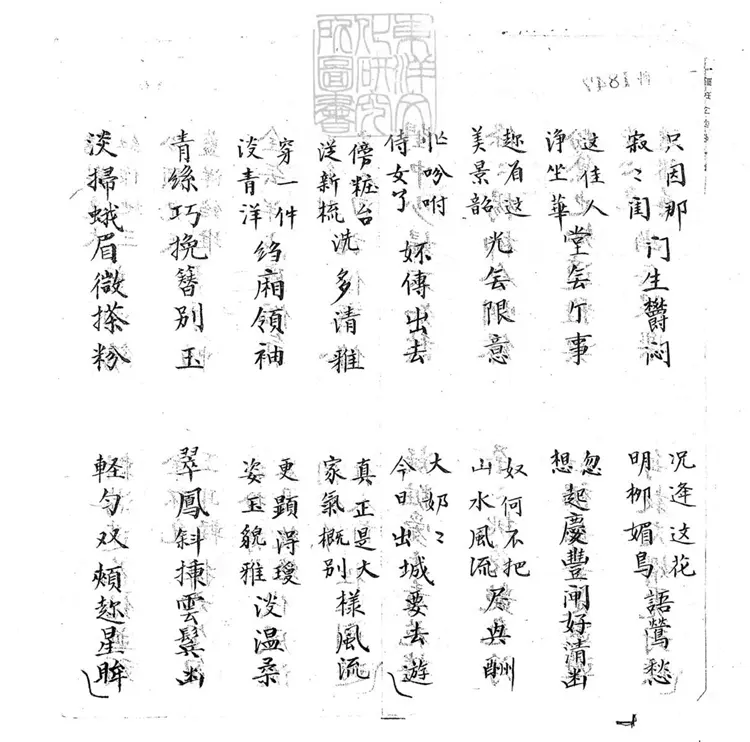 東洋文
化研究
所圖書
只因那寂〻闺门生欝闷
况逢这花明柳媚鸟語鶯愁
这佳人浄坐華堂無个事
忽想起慶豐闸好清幽
趂着这美景韶光無限意
奴何不把山水風流尽興酬
忙吩咐侍女了傳出去
大奶〻今日出城要去遊
傍粧台從新梳洗多清雅
真正是大家氣概别樣風流
穿一件淡青洋绉廂領袖
更顕得瓊姿玉貌雅淡温柔
青絲巧挽簪别玉
翠鳳斜揷雲鬓幽
淡掃蛾眉微搽粉
軽匀双頰趂星眸